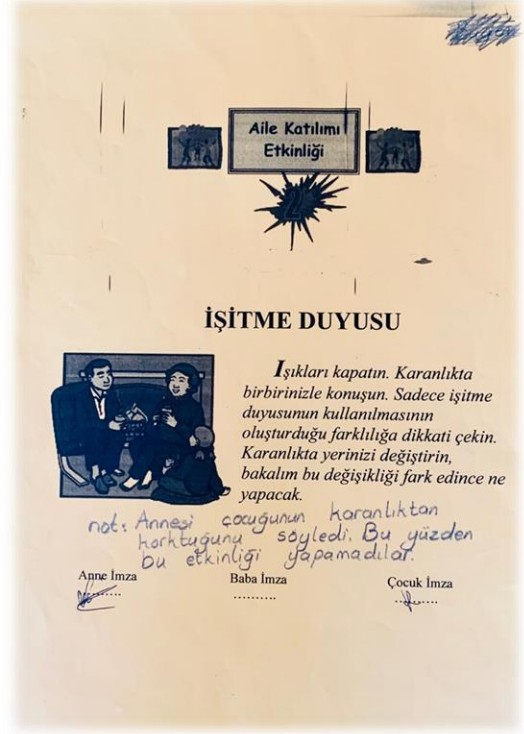 Aile Katılımı
Etkinliği
2
İŞİTME DUYUSU
Işıkları kapatın. Karanlıkta
birbirinizle konuşun. Sadece işitme
duyusunun kullanılmasının
oluşturduğu farklılığa dikkati çekin.
Karanlıkta yerinizi değiştirin,
bakalım bu değişikliği fark edince ne
yapacak.
not: Annesi çocuğunun karanlıktan
korktuğunu söyledi. Bu yüzden
bu etkinliği yapamadılar.
Anne İmza Baba İmza Çocuk İmza